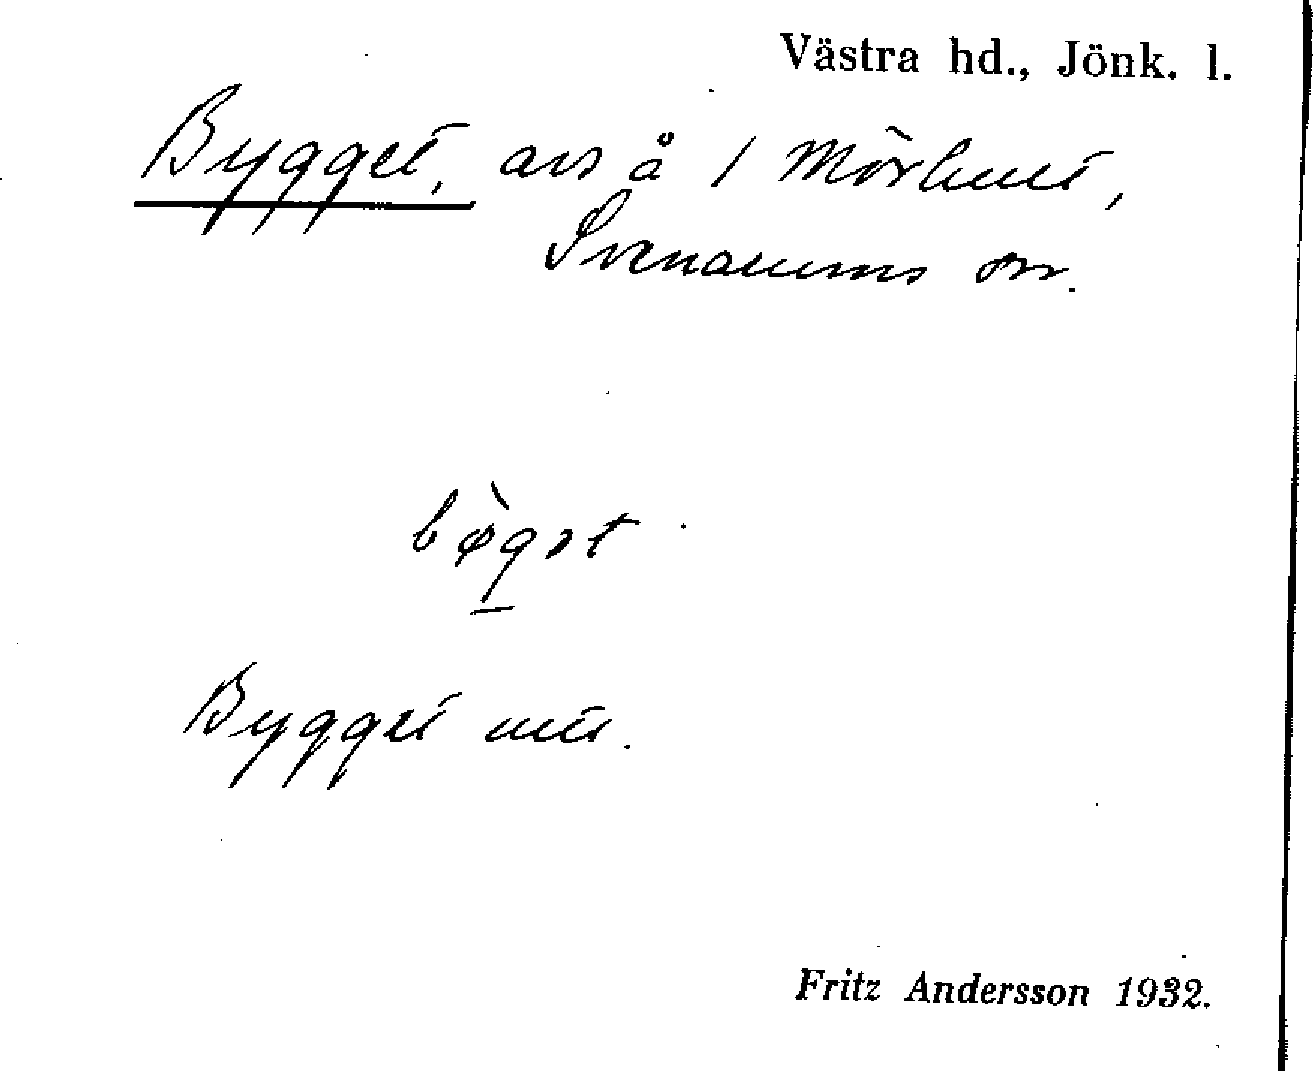 Västra hd., Jönk. l.
Bygget, avs å 1 Mörhult,
Svenarums sn.
bø̀gət
Bygget
Fritz Andersson 1932.